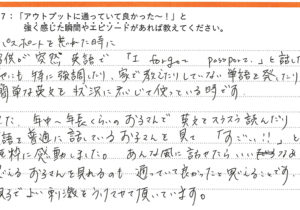 7：「アウトプットに通っていて良かった〜！」と
強く感じた瞬間やエピソードがあれば教えてください。
パスポートを忘れた時に
突然 英語で「I forgot passport.」と話した
にも 特に強調したり、家で教えたりしていない単語を発したり
簡単な英文を状況に応じて使っている時です。
年中〜年長くらいのお子さんで 英文をスラスラ読んだり
語を普通に話しているお子さんを見て 「すごい!!」と
純粋に感動しました。あんな風に話せたらいい
お子さんを見れるのも 通っていて良かったと思えることです。
よい刺激をうけさせて頂いています。